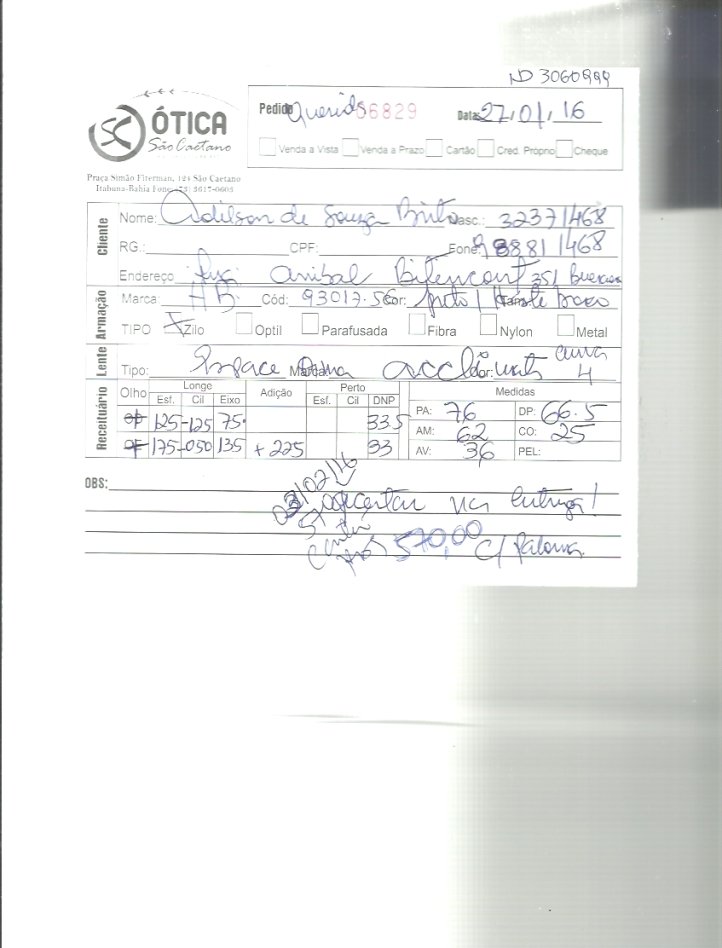 ND 3060999
SC ÓTICA
São Caetano
Praça Simão Fiterman, 121 São Caetano
Itabuna-Bahia Fone: (73) 3617-0603
Pedido 06829 Data: 27/01/16
Venda a Vista Venda a Prazo Cartão Cred. Próprio Cheque
Cliente
Nome: Adilson de Souza Brito Nasc.: 32371468
RG.: CPF: Fone: 988811468
Endereço Anibal 351
Armação
Marca: HB Cód: 93017.56 Cor: preto
TIPO X Zilo Optil Parafusada Fibra Nylon Metal
Lente
Tipo: Space Marca: Cor: curva 4
Receituário
Olho Longe Adição Perto DNP Medidas
Esf. Cil Eixo Esf. Cil
125 -125 75 33.5
175 -050 135 +225 33
PA: 76 DP: 66.5
AM: 62 CO: 25
AV: 36 PEL:
OBS:
03/02/16
acertar na entrega!
570,00 C/ Paloma